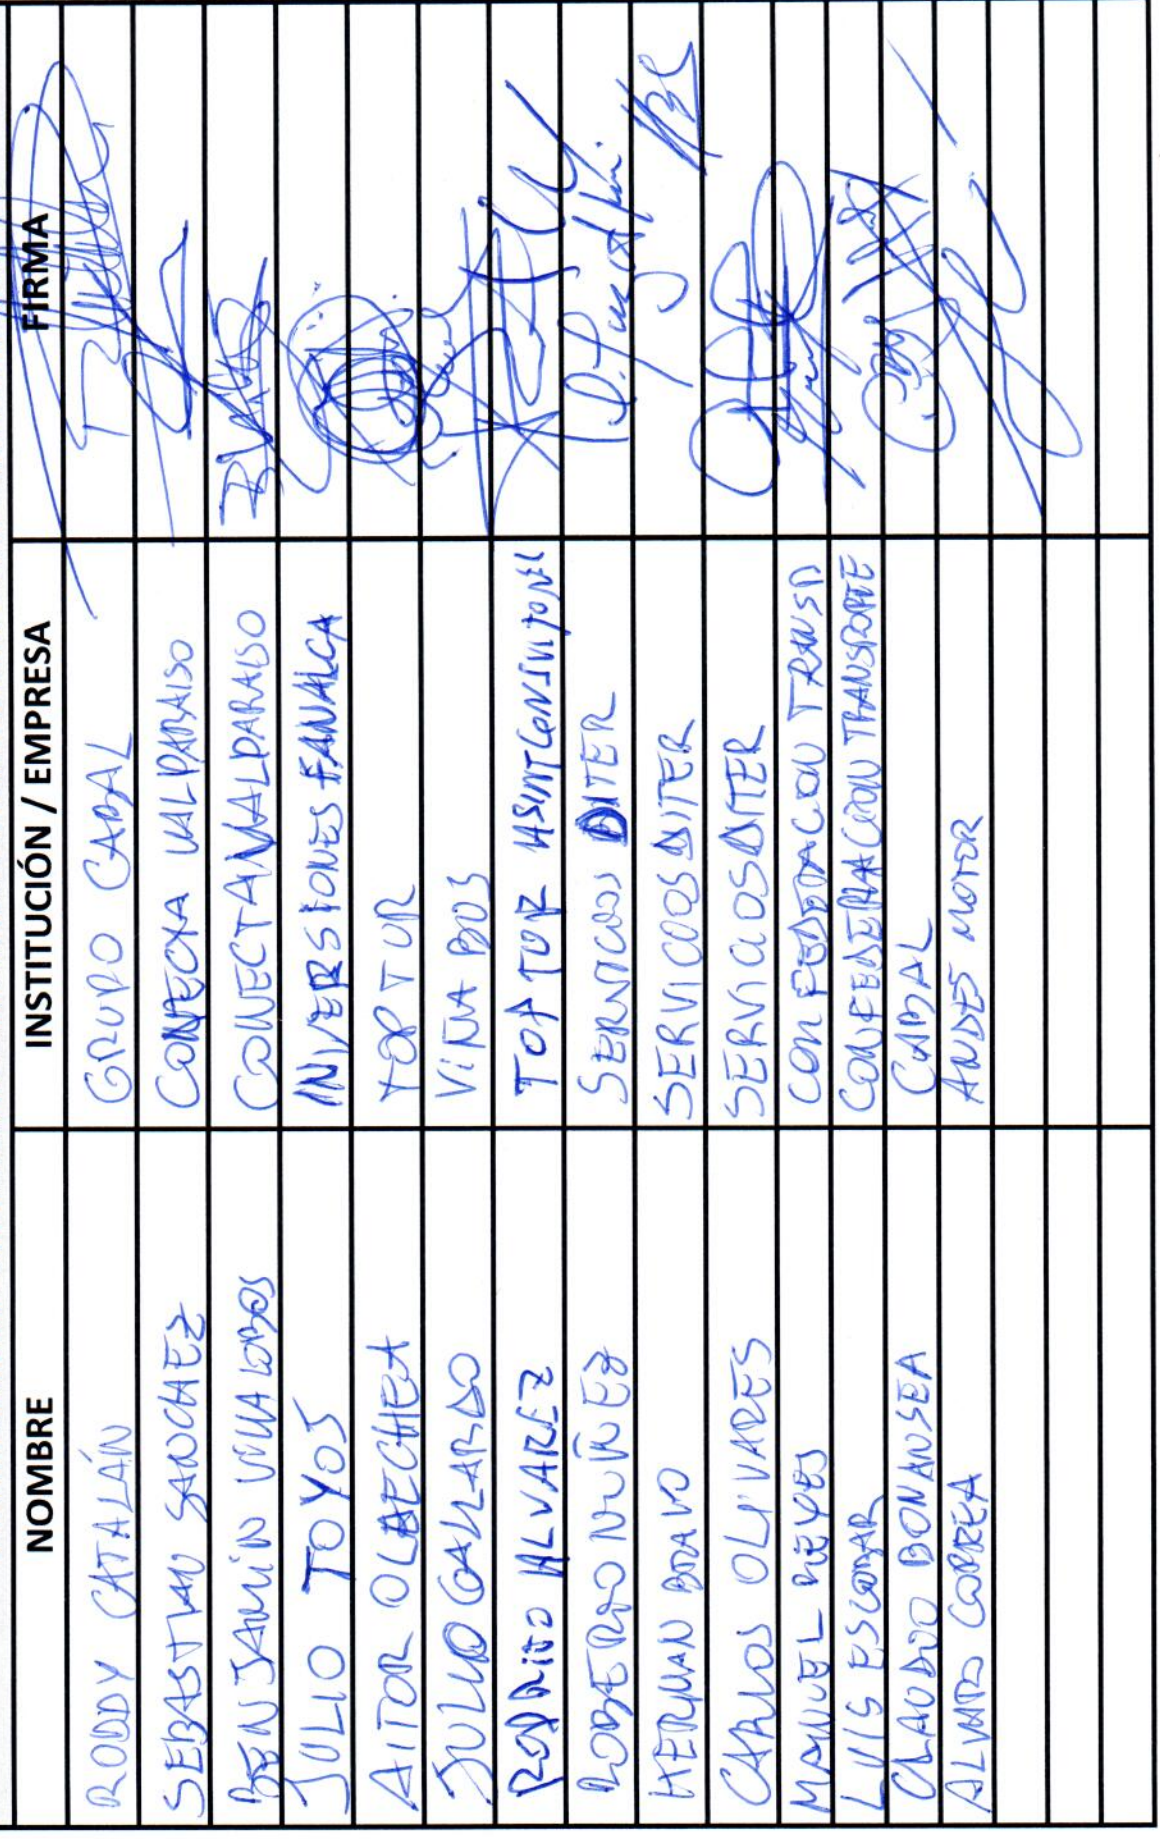 NOMBRE INSTITUCIÓN / EMPRESA FIRMA
RODDY CATALÁN GRUPO CABAL
SEBASTIAN SANCHEZ CONECTA VALPARAISO
BENJAMIN VILLALOBOS CONECTA VALPARAISO
JULIO TOYOS INVERSIONES FANALCA
AITOR OLAECHEA TOP TUR
JULIO GALLARDO VIÑA BUS
RODRIGO ALVAREZ TOP TUR
ROBERTO NUÑEZ SERVICIOS DITER
HERMAN BRAVO SERVICIOS DITER
CARLOS OLIVARES SERVICIOS DITER
MANUEL REYES CONFEDERACION
LUIS ESCOBAR CONFEDERACION TRANSPORTE
CLAUDIO BONANSEA CABAL
ALVARO CORREA ANDES MOTOR